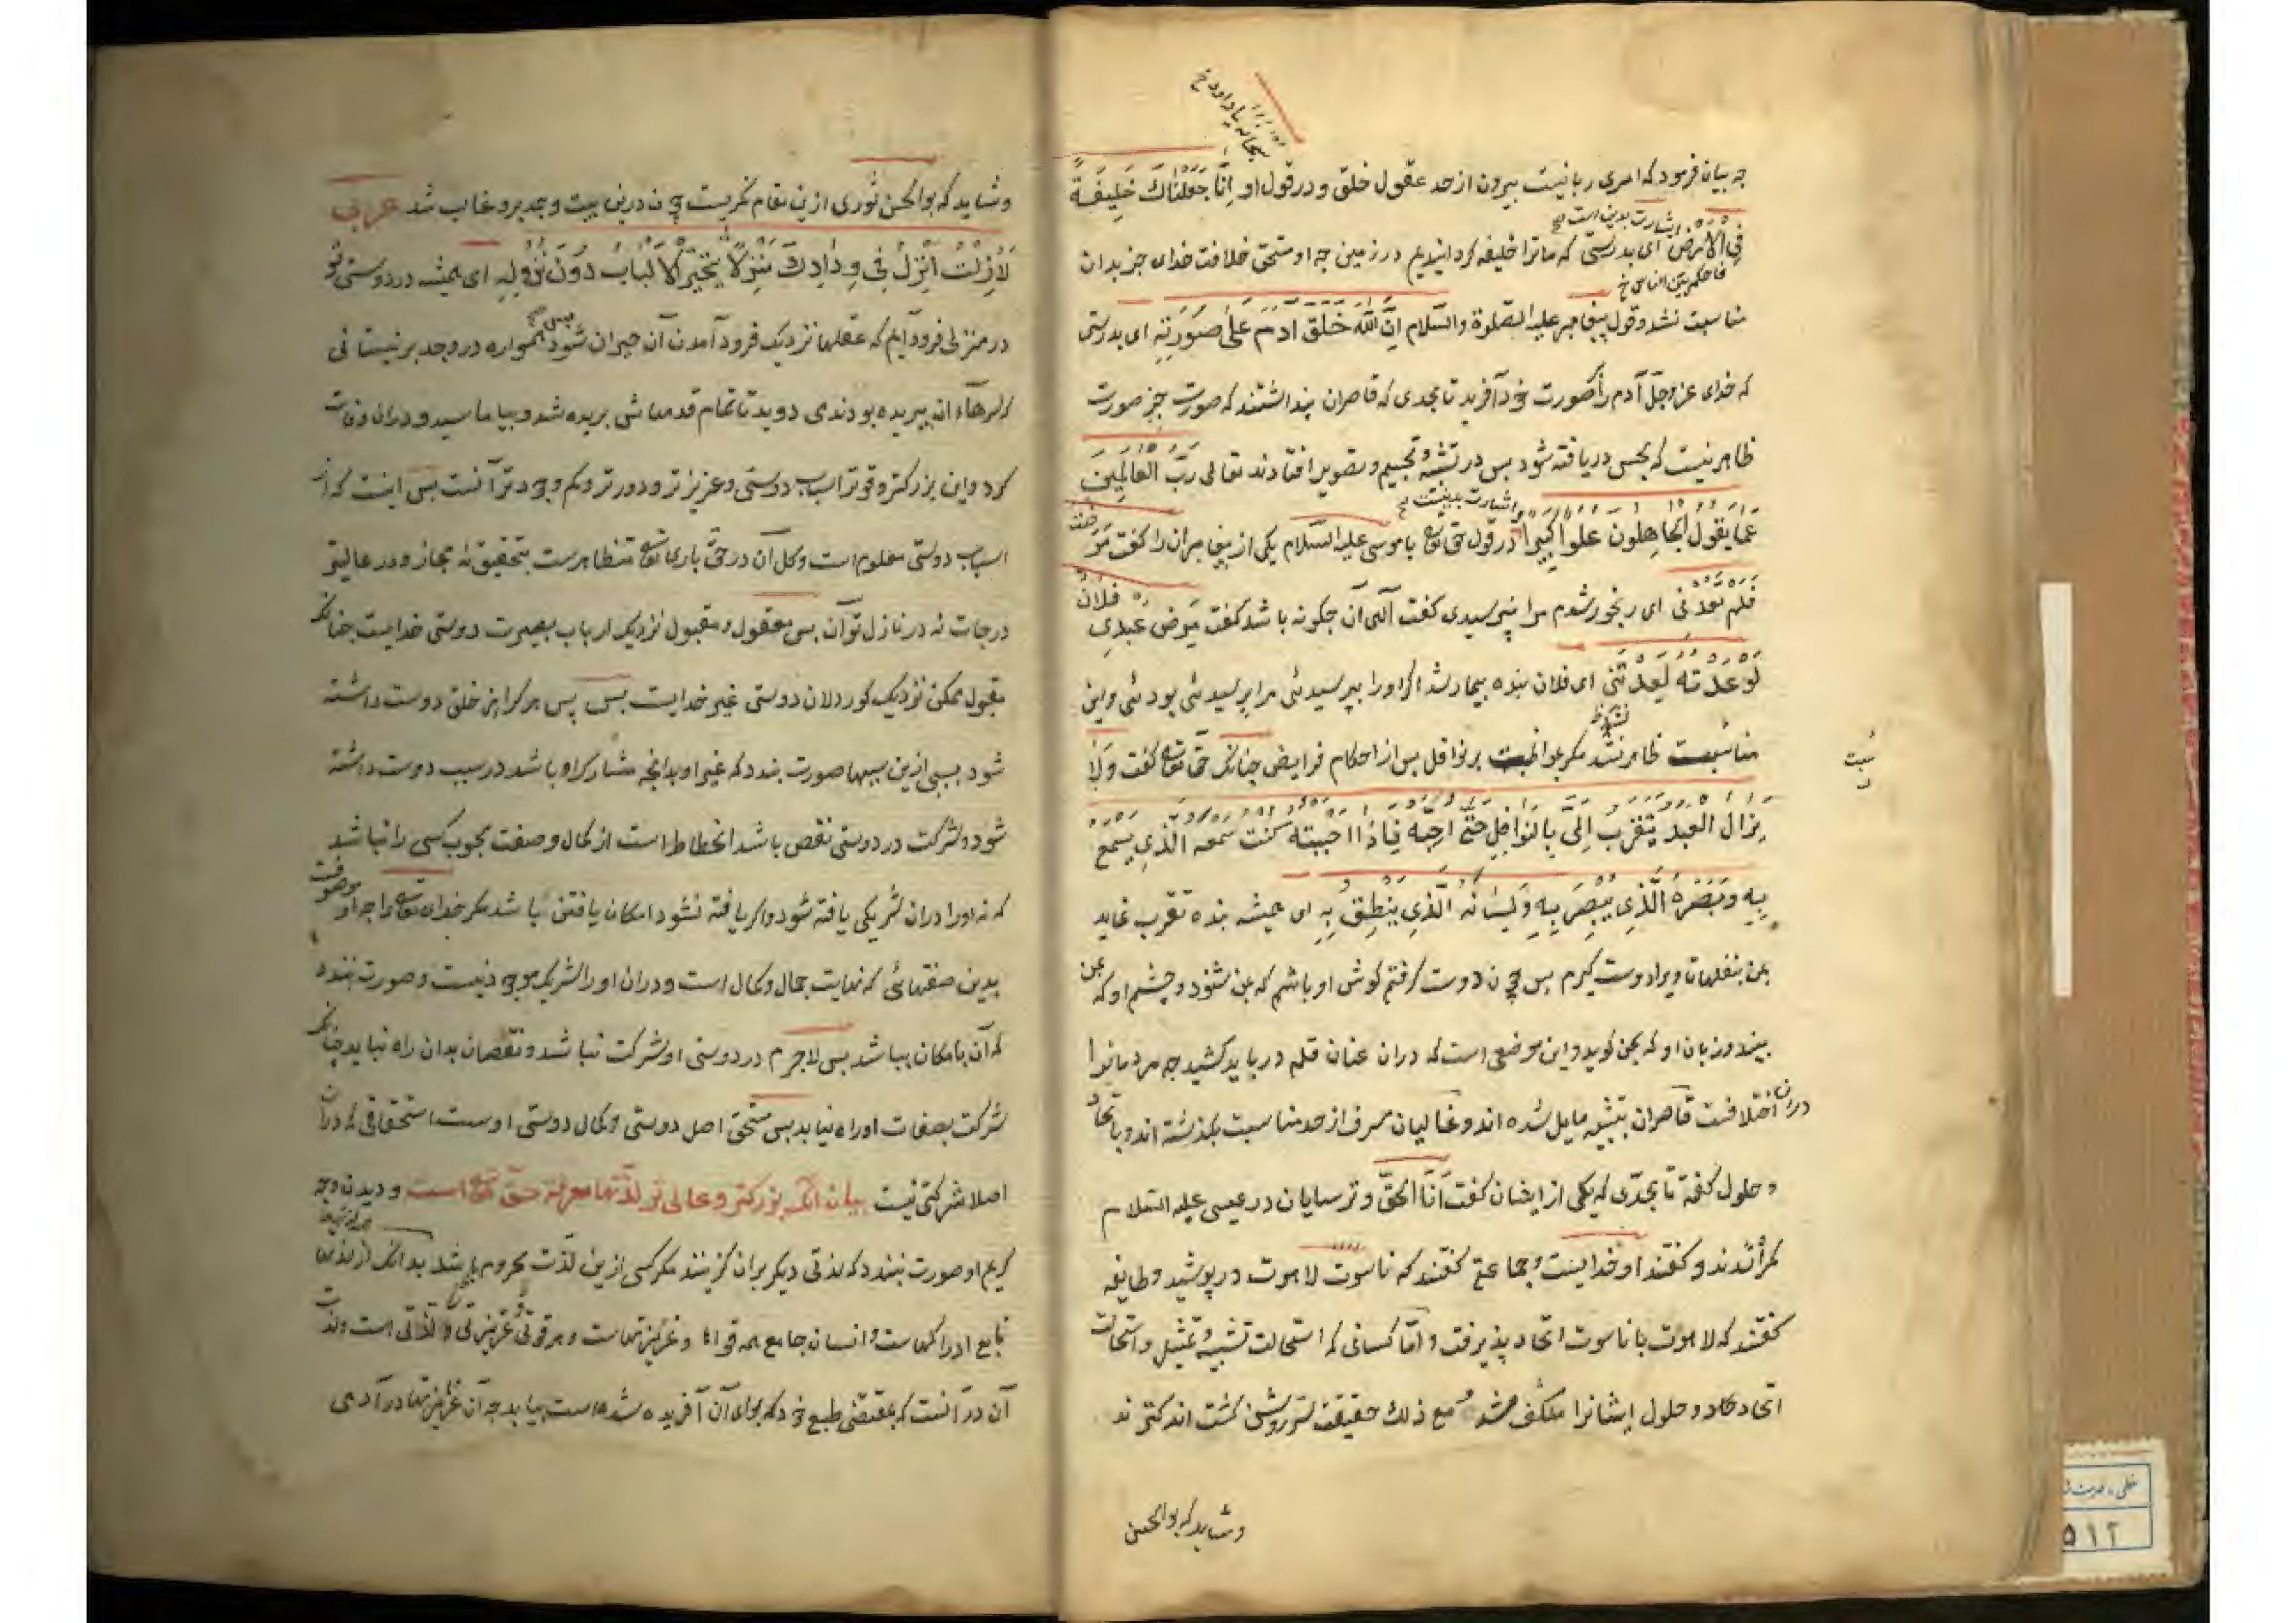 سبحانه یا داود خ
چه بیان فرمود که امری ربانیست بیرون از حد عقول خلق و در قول او اِنَّا جَعَلْنَاكَ خَلِيفَةً
اشارت بدین است خ
فِي الْاَرْضِ ای بدرستی که ما ترا خلیفه کردانیدیم در زمین چه او مستحق خلافت خدای جز بدان
فاحکم بین الناس خ
مناسبت نشد و قول پیغامبر علیه الصلوة والسلام اِنَّ اللهَ خَلَقَ اٰدَمَ عَلٰی صُورَتِهِ ای بدرستی
که خدای عز وجل آدم را بصورت خود آفرید تا بحدی که قاصران پنداشتند که صورت جز صورت
ظاهر نیست که بحس دریافته شود پس در تشبیه و تجسیم و تصویر افتادند تعالی رَبُّ الْعَالَمِينَ
و اشارت بدینست خ
عَمَّا يَقُولُ الْجَاهِلُونَ عُلُوًّا كَبِيرًا در قول حق تعالی با موسی علیه السلام یکی از پیغامبران را کفت مَرِضْتُ
فَلَمْ تَعُدْنِي ای رنجور شدم مرا نپرسیدی کفت الهی آن چکونه باشد کفت مَرِضَ عَبْدِي فُلَانٌ
لَوْ عُدْتَهُ لَعُدْتَنِي ای فلان بنده بیمار شد اکر اورا بپرسیدئی مرا پرسیدئی بودئی و این
مناسبت ظاهر نشد مکر بمواظبت بر نوافل پس از احکام فرایض چنانک حق تعالی کفت وَلَا
نسبت
يَزَالُ الْعَبْدُ يَتَقَرَّبُ اِلَيَّ بِالنَّوَافِلِ حَتَّى اُحِبَّهُ فَاِذَا اَحْبَبْتُهُ كُنْتُ سَمْعَهُ الَّذِي يَسْمَعُ
بِهِ وَبَصَرَهُ الَّذِي يُبْصِرُ بِهِ وَلِسَانَهُ الَّذِي يَنْطِقُ بِهِ ای همیشه بنده تقرب نماید
بمن بنفلها تا ویرا دوست کیرم پس چون دوست کرفتم کوش او باشم که بمن شنود و چشم او که بمن
بیند و زبان او که بمن کوید و این موضعی است که دران عنان قلم درباید کشید چه مردمانرا
دران اختلافست قاصران بتشبیه مایل شده اند و غالیان مسرف از حد مناسبت بکذشته اند و باتحاد
و حلول کفته تا بحدی که یکی از ایشان کفت اَنَا الْحَقُّ و ترسایان در عیسی علیه السلام
کمراه شدند و کفتند او خداینست و جماعتی کفتند که ناسوت لاهوت درپوشید و طایفه
کفتند که لاهوت با ناسوت اتحاد پذیرفت و اما کسانی که استحالت تشبیه و تمثیل و استحالت
اتحاد و حلول ایشانرا منکشف شد و مع ذلك حقیقت سر روشن کشت اندکترند
وشاید که بو الحسن
وشاید که بو الحسن نوری ازین مقام نکریست چون درین بیت وجد برو غالب شد عربی
لَازِلْتُ اَنْزِلُ فِي وِدَادِكَ مَنْزِلًا يَتَحَيَّرُ الْاَلْبَابُ دُونَ نُزُولِهِ ای همیشه در دوستی تو
در منزلی فرود آیم که عقلها نزدیک فرود آمدن آن حیران شود پس همواره در وجد بر نیستانی
که سرهاء آن ببریده بودند می دوید تا تمام قدمهاش بریده شد و بیاماسید و دران وفات
کرد و این بزرکتر و قوی‌تر اسباب دوستی و عزیزتر و دورتر و کم وجودتر آنست پس اینست که از
اسباب دوستی معلوم است و کل آن در حق باری تعالی متظاهرست بتحقیق نه مجاز و در عالیتر
درجات نه در نازل تر آن پس معقول و مقبول نزدیک ارباب بصیرت دوستی خدایست چنانک
مقبول ممکن نزدیک کور دلان دوستی غیر خدایست بس پس هر کرا از خلق دوست داشته
شود بسببی ازین سببها صورت بندد که غیر او بدانچه مشارک او باشد در سبب دوست داشته
شود و شرکت در دوستی نقص باشد انحطاط است از کمال و صفت محبوب کسی را نباشد
که نه اورا دران شریکی یافته شود و اکر یافته نشود امکان یافتن باشد مکر خدای تعالی را چه او موصوفست
بدین صفتهائی که نهایت جمال و کمال است و دران اورا شریک موجود نیست و صورت نبندد
که آن بامکان بباشد پس لاجرم در دوستی او شرکت نباشد و نقصان بدان راه نیابد چنانک
شرکت بصفات او راه نیابد پس مستحق اصل دوستی و کمال دوستی اوست استحقاقی که دران
اصلا شرکتی نیست بیان آنک بزرکتر و عالی تر لذتها معرفت حق تعالی است و دیدن وجه
کریم او صورت نبندد که لذتی دیکر بران کزینند مکر کسی ازین لذت محروم باشد بدانک لذتها
تابع ادراکهاست و انسان جامع همه قوتها و غریزتهاست و هر قوتی و غریزتی را لذتی است و لذت
آن در آنست که بمقتضی طبع خود که برای آن آفریده شده است بیابد چه آن غریزتها در آدمی